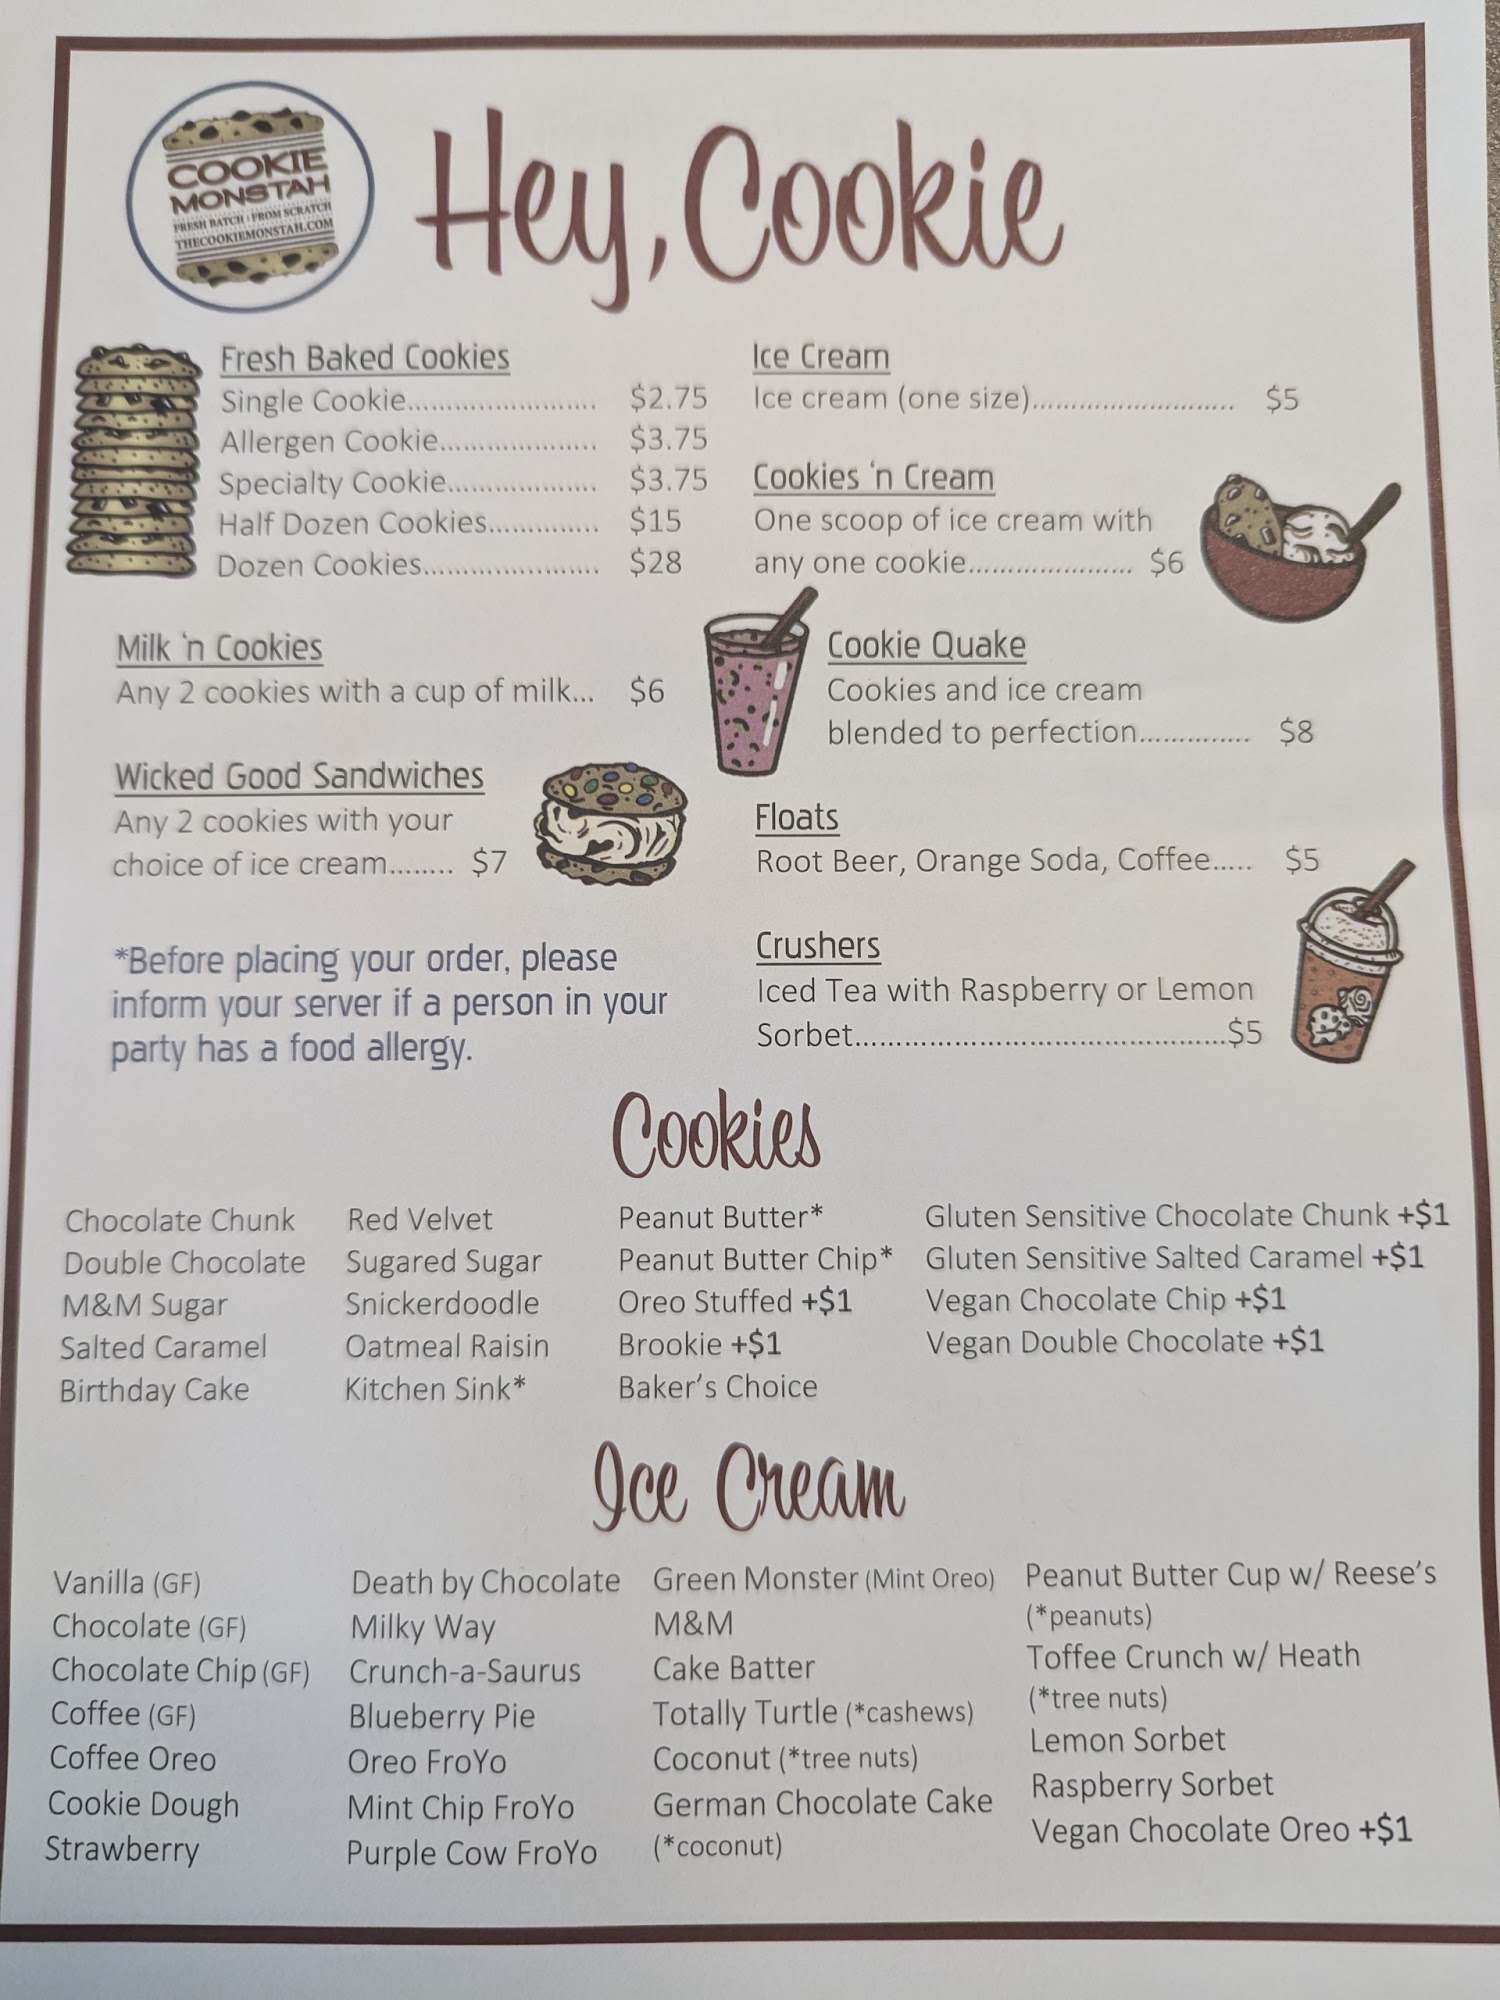 COOKIE
MONSTAH
FRESH BATCH | FROM SCRATCH
THECOOKIEMONSTAH.COM
Hey, Cookie
Fresh Baked Cookies
Single Cookie........................ $2.75
Allergen Cookie.................... $3.75
Specialty Cookie................... $3.75
Half Dozen Cookies.............. $15
Dozen Cookies...................... $28
Milk 'n Cookies
Any 2 cookies with a cup of milk... $6
Wicked Good Sandwiches
Any 2 cookies with your
choice of ice cream........ $7
*Before placing your order, please
inform your server if a person in your
party has a food allergy.
Ice Cream
Ice cream (one size).......................... $5
Cookies 'n Cream
One scoop of ice cream with
any one cookie..................... $6
Cookie Quake
Cookies and ice cream
blended to perfection.............. $8
Floats
Root Beer, Orange Soda, Coffee..... $5
Crushers
Iced Tea with Raspberry or Lemon
Sorbet...............................................$5
Cookies
Chocolate Chunk
Double Chocolate
M&M Sugar
Salted Caramel
Birthday Cake
Red Velvet
Sugared Sugar
Snickerdoodle
Oatmeal Raisin
Kitchen Sink*
Peanut Butter*
Peanut Butter Chip*
Oreo Stuffed +$1
Brookie +$1
Baker's Choice
Gluten Sensitive Chocolate Chunk +$1
Gluten Sensitive Salted Caramel +$1
Vegan Chocolate Chip +$1
Vegan Double Chocolate +$1
Ice Cream
Vanilla (GF)
Chocolate (GF)
Chocolate Chip (GF)
Coffee (GF)
Coffee Oreo
Cookie Dough
Strawberry
Death by Chocolate
Milky Way
Crunch-a-Saurus
Blueberry Pie
Oreo FroYo
Mint Chip FroYo
Purple Cow FroYo
Green Monster (Mint Oreo)
M&M
Cake Batter
Totally Turtle (*cashews)
Coconut (*tree nuts)
German Chocolate Cake
(*coconut)
Peanut Butter Cup w/ Reese's
(*peanuts)
Toffee Crunch w/ Heath
(*tree nuts)
Lemon Sorbet
Raspberry Sorbet
Vegan Chocolate Oreo +$1